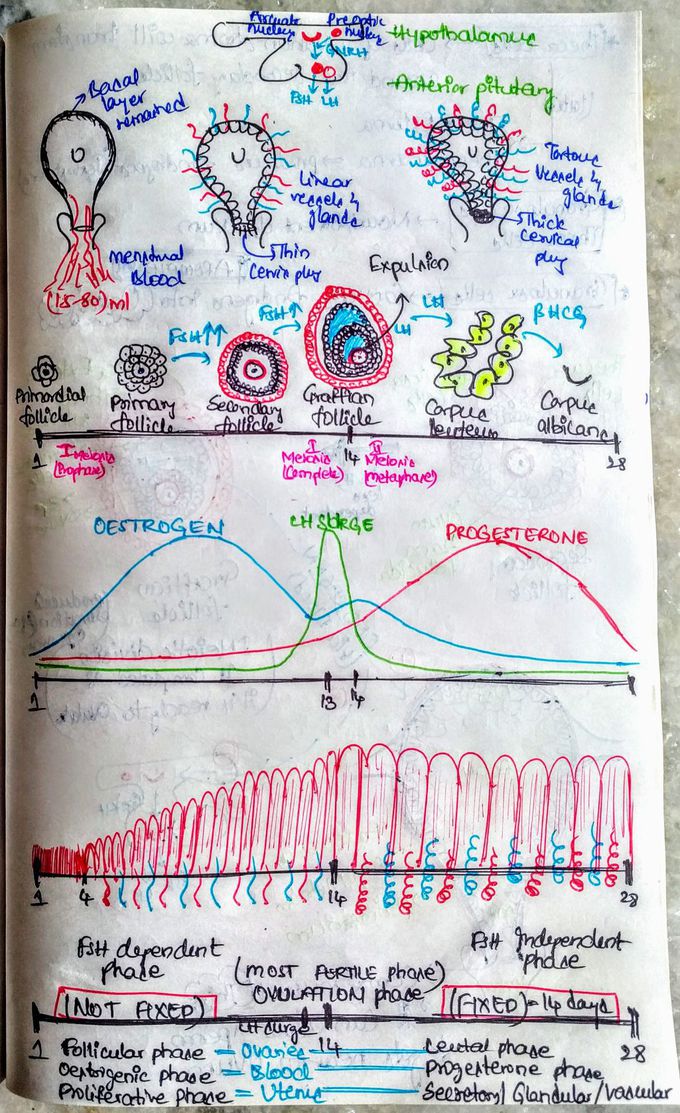 Arcuate nucleus
Preoptic nucleus
Hypothalamus
GNRH
FSH LH
Anterior pitutary
Basal layer remained
Linear vessels & glands
Tortous vessels & glands
Thin Cervix plug
Thick cervical plug
menstrual Blood
(15-80) ml
Expulsion
FSH↑↑
FSH↑
LH
LH
BHCG
Primordial follicle
Primary follicle
Secondary follicle
Graffian follicle
Corpus luteum
Corpus albicans
1 14 28
I Meiosis (Prophase)
I Meiosis (Complete)
II Meiosis (metaphase)
OESTROGEN
LH SURGE
PROGESTERONE
1 13 14
1 4 14 28
FSH dependent phase
(MOST FERTILE phase)
OVULATION phase
FSH Independent phase
(NOT FIXED)
(FIXED) = 14 days
LH surge
1 14 28
Follicular phase = Ovaries Leutal phase
Oestrogenic phase = Blood Progesterone phase
Proliferative phase = Uterus Secretory/Glandular/vascular